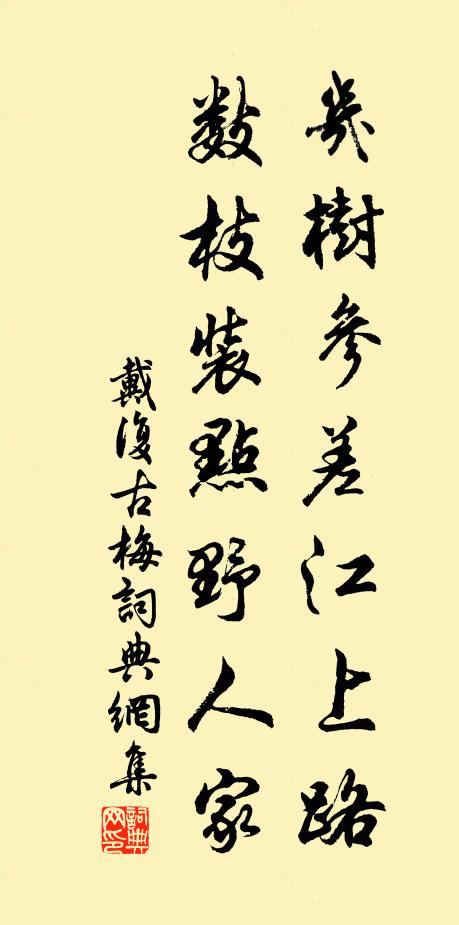 幾樹參差江上路
數枝裝點野人家
戴復古梅詞典網集
詞典網印